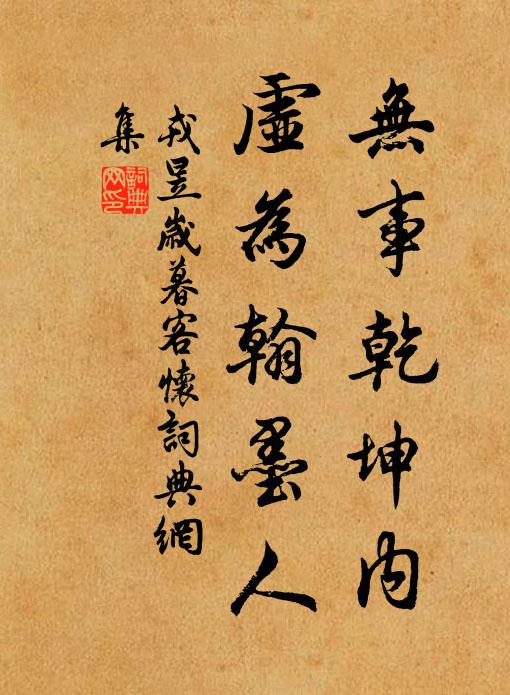 無事乾坤內
虛為翰墨人
戎昱歲暮客懷詞典網
集
詞典
网印